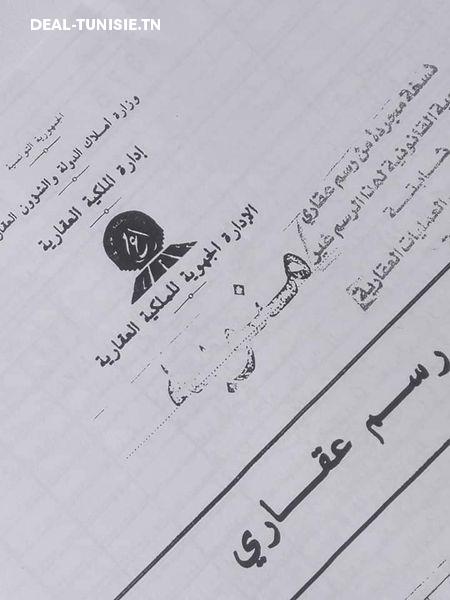 DEAL-TUNISIE.TN
الجمهورية التونسية
وزارة أملاك الدولة والشؤون
إدارة الملكية العقارية
الإدارة الجهوية للملكية العقارية
نسخة مجردة من رسم عقاري
القانونية لهذا الرسم غير
ثابتة
العمليات العقارية
رسم عقاري